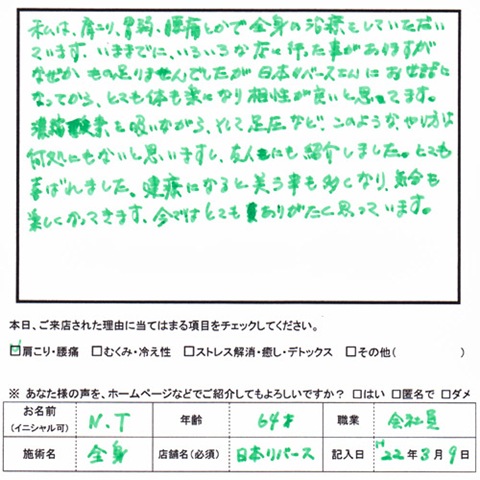 私は、肩こり、胃弱、腰痛とかで全身の治療をしていただい
ています。いままでに、いろいろな店に行った事がありますが
なぜか もの足りませんでしたが日本リバースさんにお世話に
なってから、とても体も楽になり相性が良いと思ってます。
濃縮酸素を吸いながら、そして足圧など、このような、やり方は
何処にもないと思いますし、友人にも紹介しました。とても
喜ばれました。健康になると笑う事も多くなり、気分も
楽しくなってきます、今ではとてもありがたく思っています。
本日、ご来店された理由に当てはまる項目をチェックしてください。
☑肩こり・腰痛 □むくみ・冷え性 □ストレス解消・癒し・デトックス □その他( )
※ あなた様の声を、ホームページなどでご紹介してもよろしいですか? □はい □匿名で □ダメ
お名前 (イニシャル可) N.T 年齢 64才 職業 会社員
施術名 全身 店舗名(必須) 日本リバース 記入日 H22年3月9日